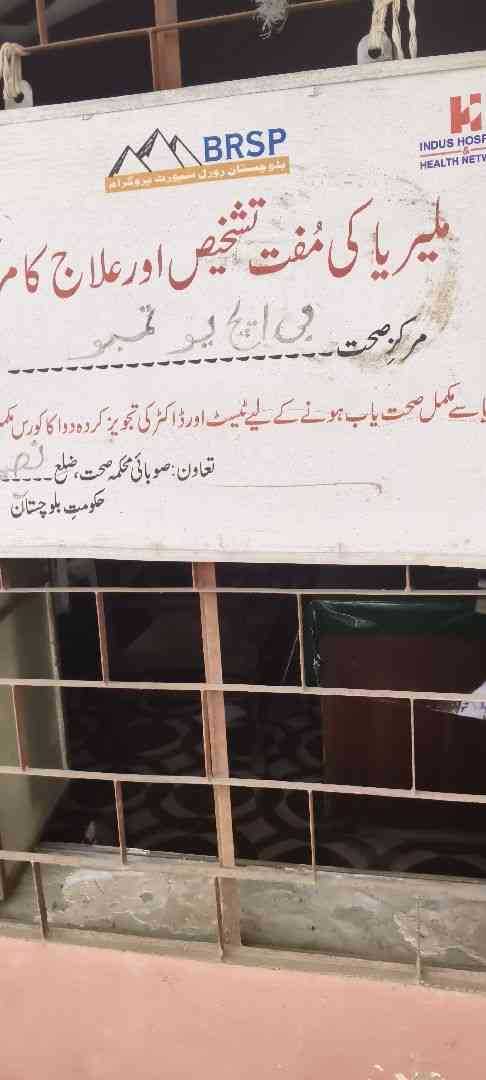 BRSP
بلوچستان رورل سپورٹ پروگرام
INDUS HOSP
&
HEALTH NETW
ملیریا کی مُفت تشخیص اور علاج کا مر
مرکزِ صحت بی ایچ یو تمبو
یا سے مکمل صحت یاب ہونے کے لیے ٹیسٹ اور ڈاکٹر کی تجویز کردہ دوا کا کورس مکم
تعاون: صوبائی محکمہ صحت، ضلع نص
حکومتِ بلوچستان